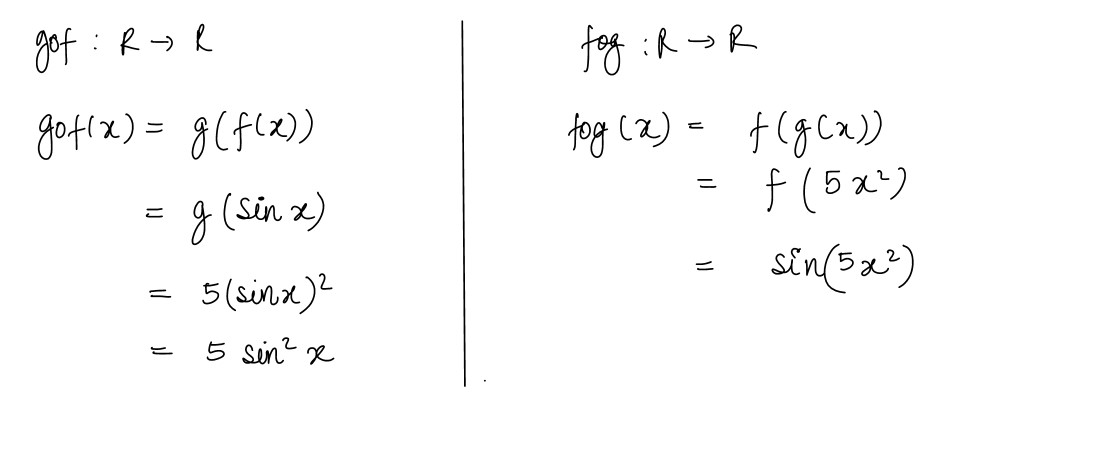 gof : R → R
gof(x) = g(f(x))
= g(sin x)
= 5(sinx)²
= 5 sin² x
fog : R → R
fog (x) = f(g(x))
= f(5x²)
= sin(5x²)